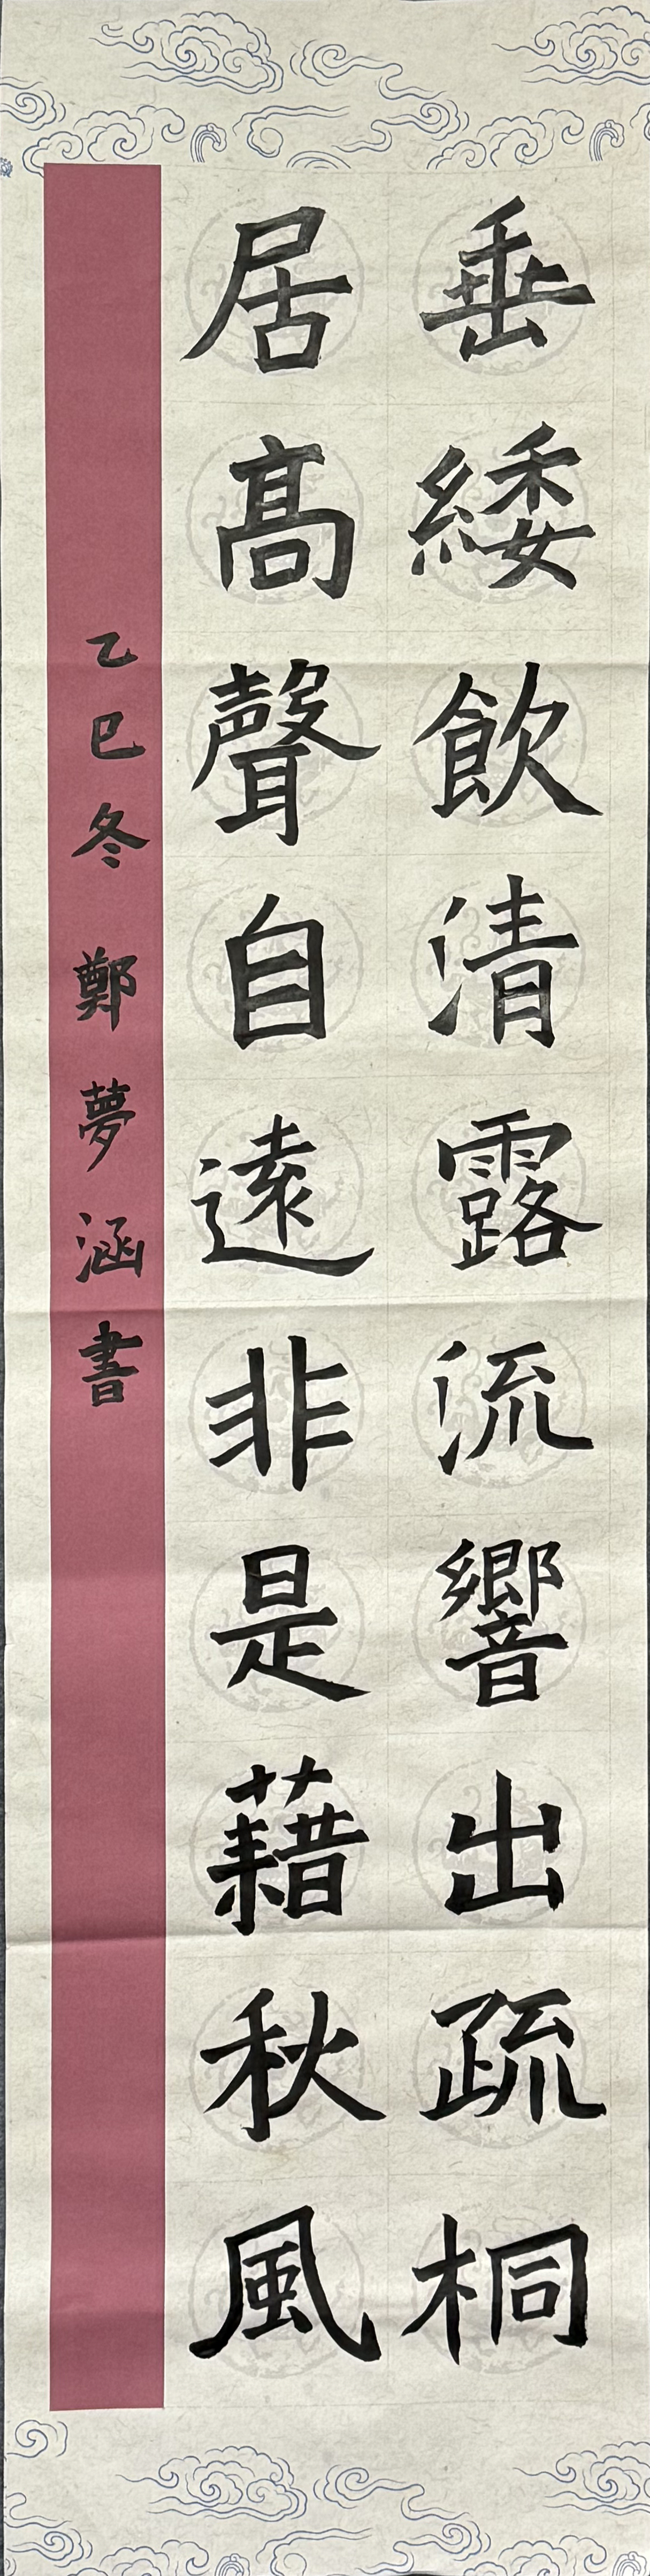 垂緌飲清露流響出疏桐
居高聲自遠非是藉秋風
乙巳冬 鄭夢涵書